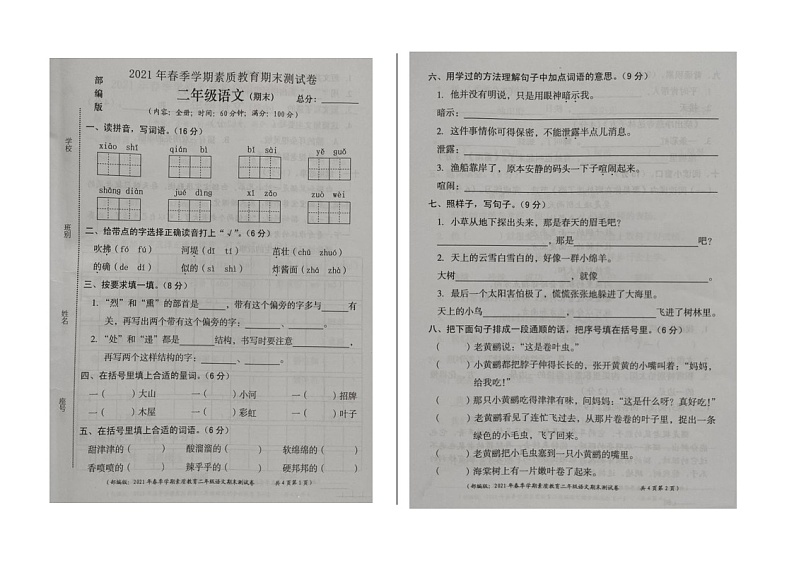 部编版
学校
班别
姓名
座号
2021年春季学期素质教育期末测试卷
二年级语文（期末） 总分：
（内容：全册；时间：60分钟；满分：100分）
一、读拼音，写词语。（16分）
xiāo shī qián bì bǐ sài yě guǒ
shǎng diàn jué dìng xǐ zǎo zuò wèi
二、给带点的字选择正确读音打上“√”。（6分）
吹拂（fó fú） 河堤（dī tí） 茁壮（chū zhuó）
的确（de dí） 似的（sì shì） 炸酱面（zhá zhà）
三、按要求填一填。（8分）
1. “烈”和“熏”的部首是 ，带有这个偏旁的字多与 有
关，再写出两个带有这个偏旁的字： 、 。
2. “处”和“递”都是 结构，书写时要注意 ，
再写两个这样结构的字： 、 。
四、在括号里填上合适的量词。（6分）
一（ ）大山 一（ ）小河 一（ ）招牌
一（ ）木屋 一（ ）彩虹 一（ ）叶子
五、在括号里填上合适的词语。（6分）
甜津津的（ ） 酸溜溜的（ ） 软绵绵的（ ）
香喷喷的（ ） 辣乎乎的（ ） 硬邦邦的（ ）
（部编版：2021年春季学期素质教育二年级语文期末测试卷 共4页第1页）
六、用学过的方法理解句子中加点词语的意思。（9分）
1. 他并没有明说，只是用眼神暗示我。
暗示：
2. 这件事情你可得保密，不能泄露半点儿消息。
泄露：
3. 渔船靠岸了，原本安静的码头一下子喧闹起来。
喧闹：
七、照样子，写句子。（9分）
1. 小草从地下探出头来，那是春天的眉毛吧？
，那是 吧？
2. 天上的云雪白雪白的，好像一群小绵羊。
大树 ，就像 。
3. 最后一个太阳害怕极了，慌慌张张地躲进了大海里。
天上的小鸟 ， 飞进了树林里。
八、把下面句子排成一段通顺的话，把序号填在括号里。（6分）
（ ）老黄鹂说：“这是卷叶虫。”
（ ）小黄鹂都把脖子伸得长长的，张开黄黄的小嘴叫着：“妈妈，
给我吃！”
（ ）那只小黄鹂吃得津津有味，问妈妈：“这是什么呀？真好吃！”
（ ）老黄鹂看见了连忙飞过去，从那片卷卷的叶子里，捉出一条
绿色的小毛虫，飞了回来。
（ ）老黄鹂把小毛虫塞到一只小黄鹂的嘴里。
（ ）海棠树上有一片嫩叶卷了起来。
（部编版：2021年春季学期素质教育二年级语文期末测试卷 共4页第2页）